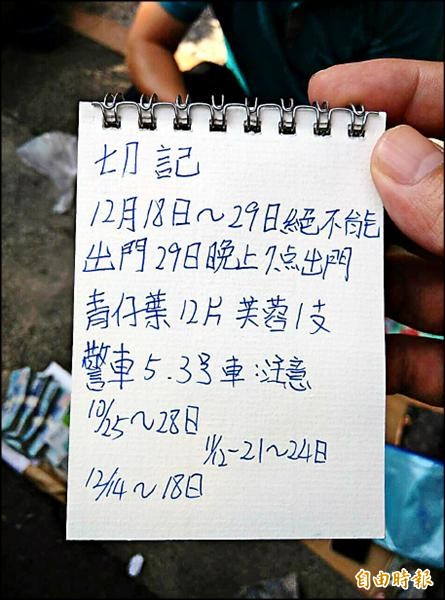 切記
12月18日～29日絕不能
出門29日晚上7点出門
青仔葉12片芙蓉1支
警車5.3号車:注意
10/25～28日
11/12-21～24日
12/14～18日
自由時報